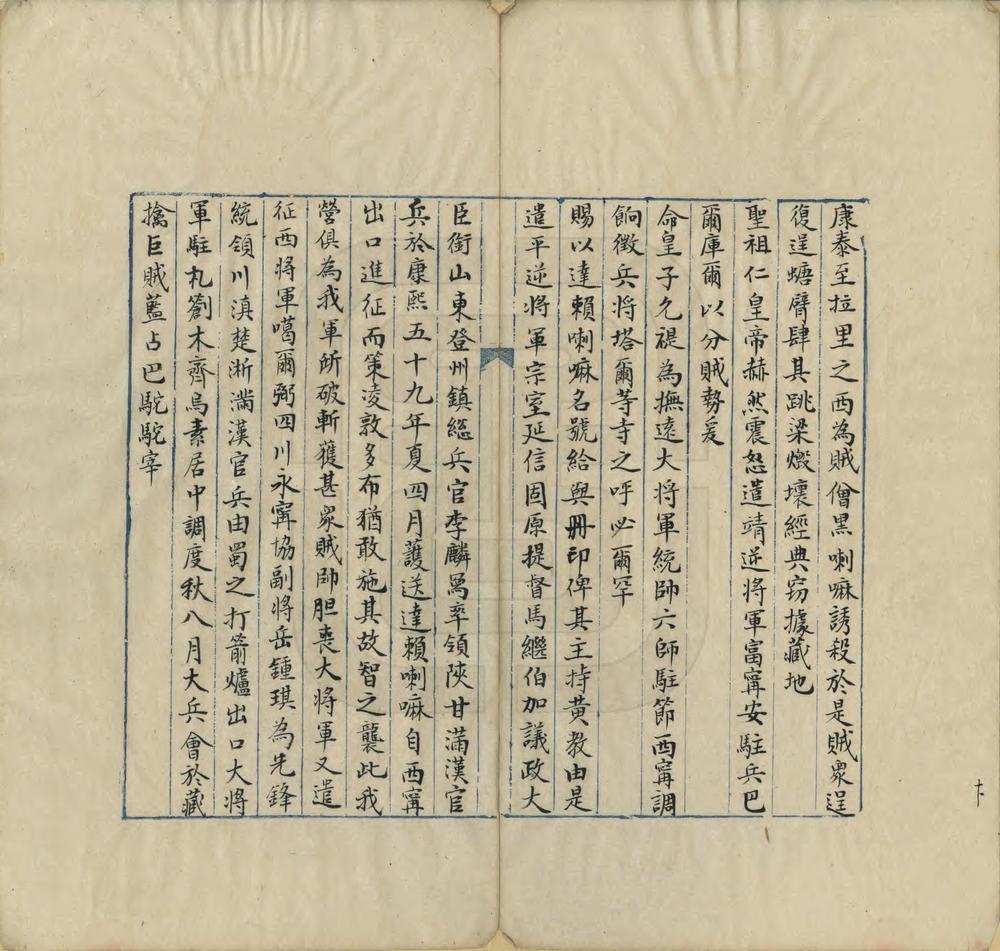 康泰至拉里之西為賊僧黑喇嘛誘殺於是賊衆逞
復逞螗臂肆其跳梁燬壞經典窃據藏地
聖祖仁皇帝赫然震怒遣靖逆將軍富寧安駐兵巴
爾庫爾以分賊勢爰
命皇子允禵為撫遠大將軍統帥六師駐節西寧調
餉徵兵將塔爾荨寺之呼必爾罕
賜以達賴喇嘛名號給與冊印俾其主持黃教由是
遣平逆將軍宗室延信固原提督馬繼伯加議政大
臣銜山東登州鎮總兵官李麟萬率領陝甘滿漢官
兵於康熙五十九年夏四月護送達賴喇嘛自西寧
出口進征而策凌敦多布猶敢施其故智之襲此我
營俱為我軍所破斬獲甚衆賊帥胆喪大將軍又遣
征西將軍噶爾弼四川永寧協副將岳鍾琪為先鋒
統領川滇楚浙滿漢官兵由蜀之打箭爐出口大將
軍駐札劄木齊烏素居中調度秋八月大兵會於藏
擒巨賊藍占巴駝駝宰